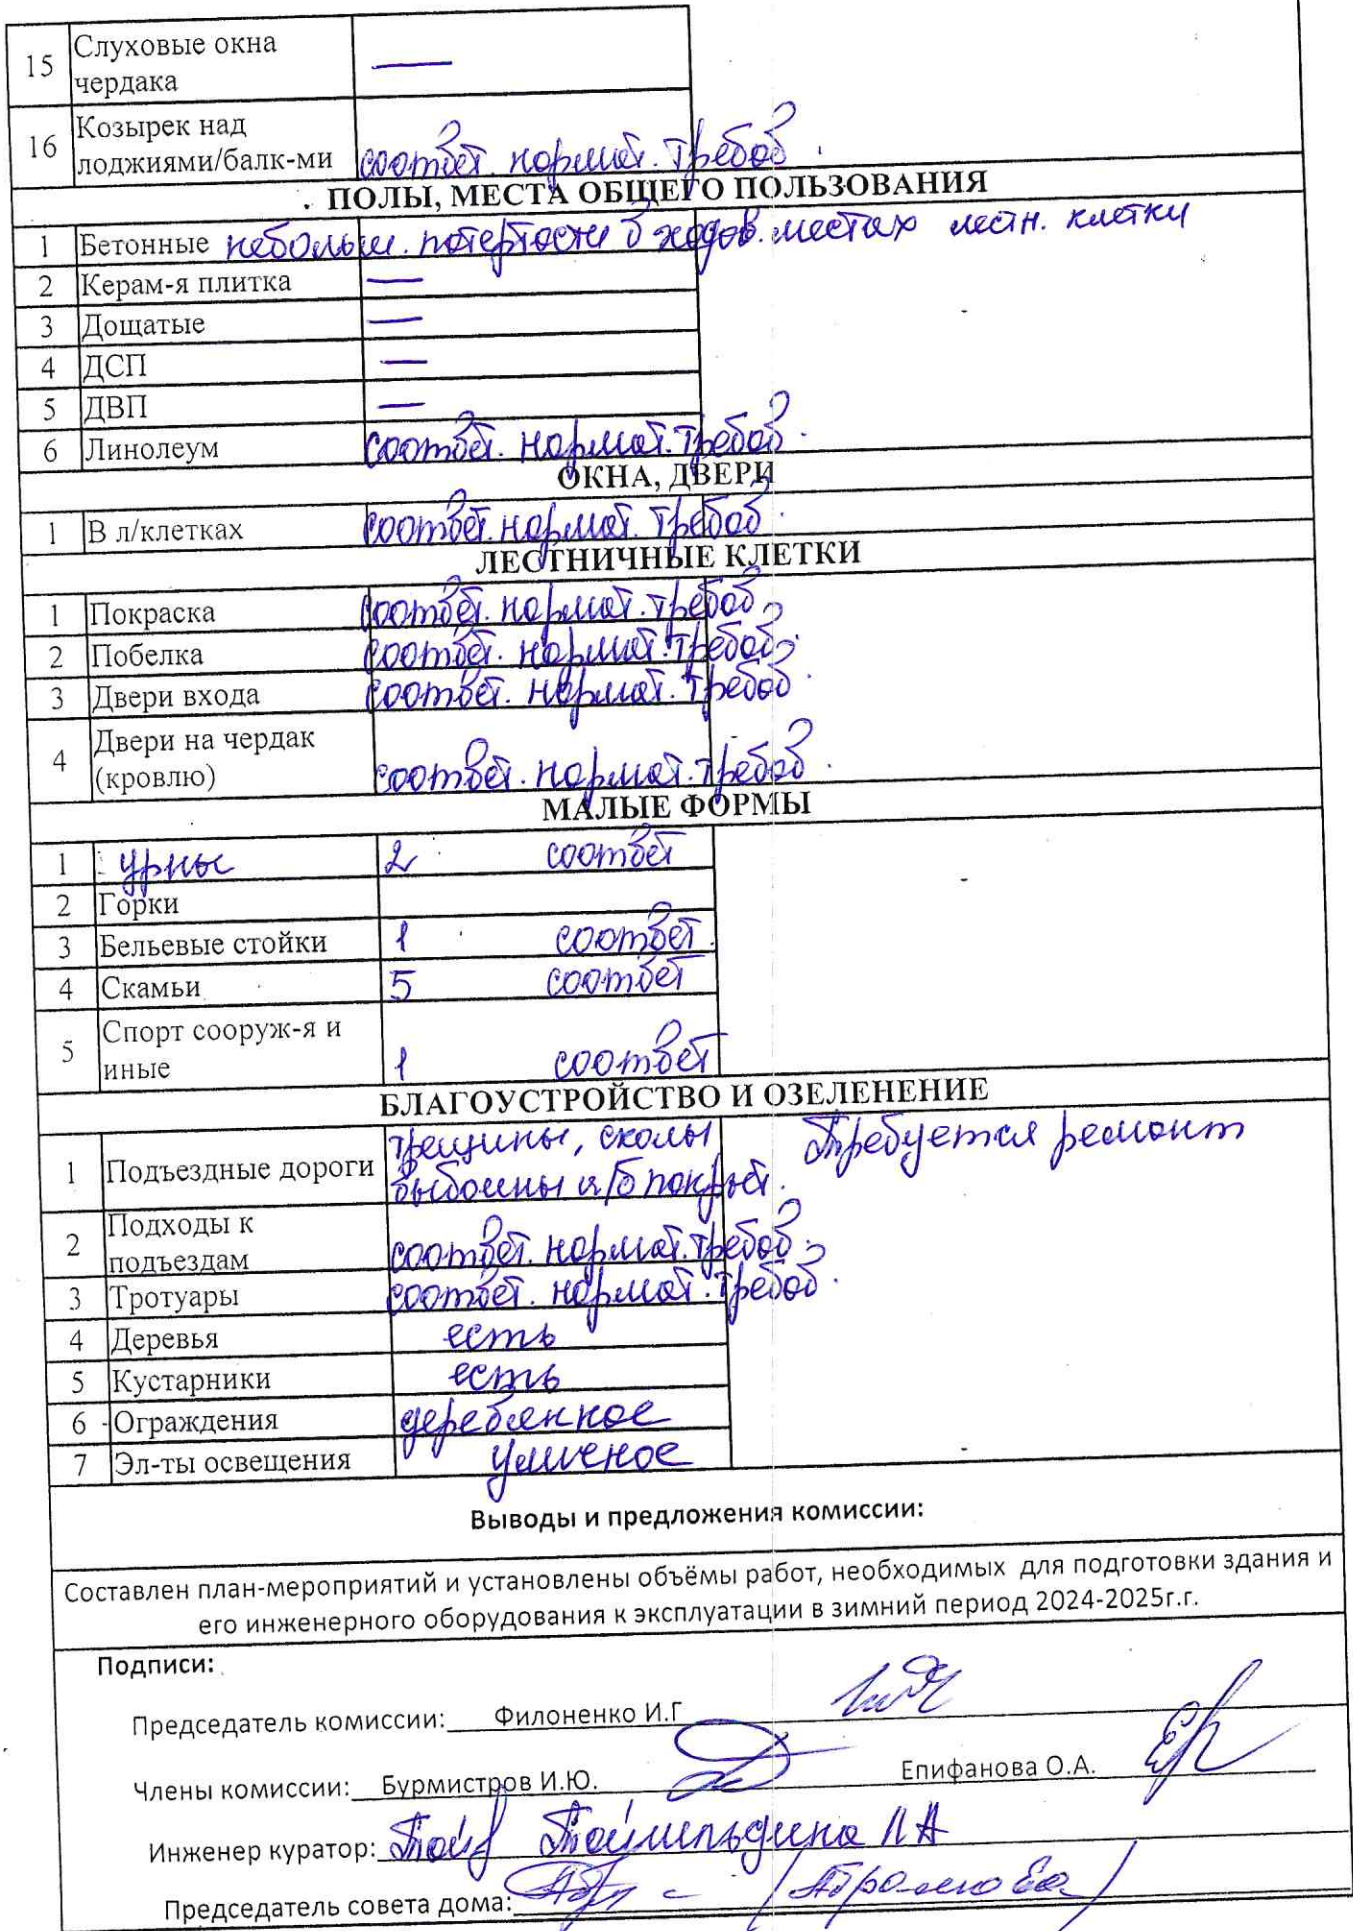 15 Слуховые окна —
чердака
16 Козырек над
лоджиями/балк-ми соответ. нормат. требов.
ПОЛЫ, МЕСТА ОБЩЕГО ПОЛЬЗОВАНИЯ
1 Бетонные небольш. потертости в ходов. местах лестн. клетки
2 Керам-я плитка —
3 Дощатые —
4 ДСП —
5 ДВП —
6 Линолеум соответ. нормат. требов.
ОКНА, ДВЕРИ
1 В л/клетках соответ. нормат. требов.
ЛЕСТНИЧНЫЕ КЛЕТКИ
1 Покраска соответ. нормат. требов.
2 Побелка соответ. нормат. требов.
3 Двери входа соответ. нормат. требов.
4 Двери на чердак
(кровлю) соответ. нормат. требов.
МАЛЫЕ ФОРМЫ
1 урны 2 соответ
2 Горки
3 Бельевые стойки 1 соответ.
4 Скамьи 5 соответ
5 Спорт сооруж-я и
иные 1 соответ
БЛАГОУСТРОЙСТВО И ОЗЕЛЕНЕНИЕ
трещины, сколы Требуется ремонт
1 Подъездные дороги выбоины а/б покрыт.
2 Подходы к
подъездам соответ. нормат. требов.
3 Тротуары соответ. нормат. требов.
4 Деревья есть
5 Кустарники есть
6 Ограждения деревянное
7 Эл-ты освещения уличное
Выводы и предложения комиссии:
Составлен план-мероприятий и установлены объёмы работ, необходимых для подготовки здания и
его инженерного оборудования к эксплуатации в зимний период 2024-2025г.г.
Подписи:
Председатель комиссии: Филоненко И.Г
Члены комиссии: Бурмистров И.Ю. Епифанова О.А.
Инженер куратор: Тоймильдина Л А
Председатель совета дома: